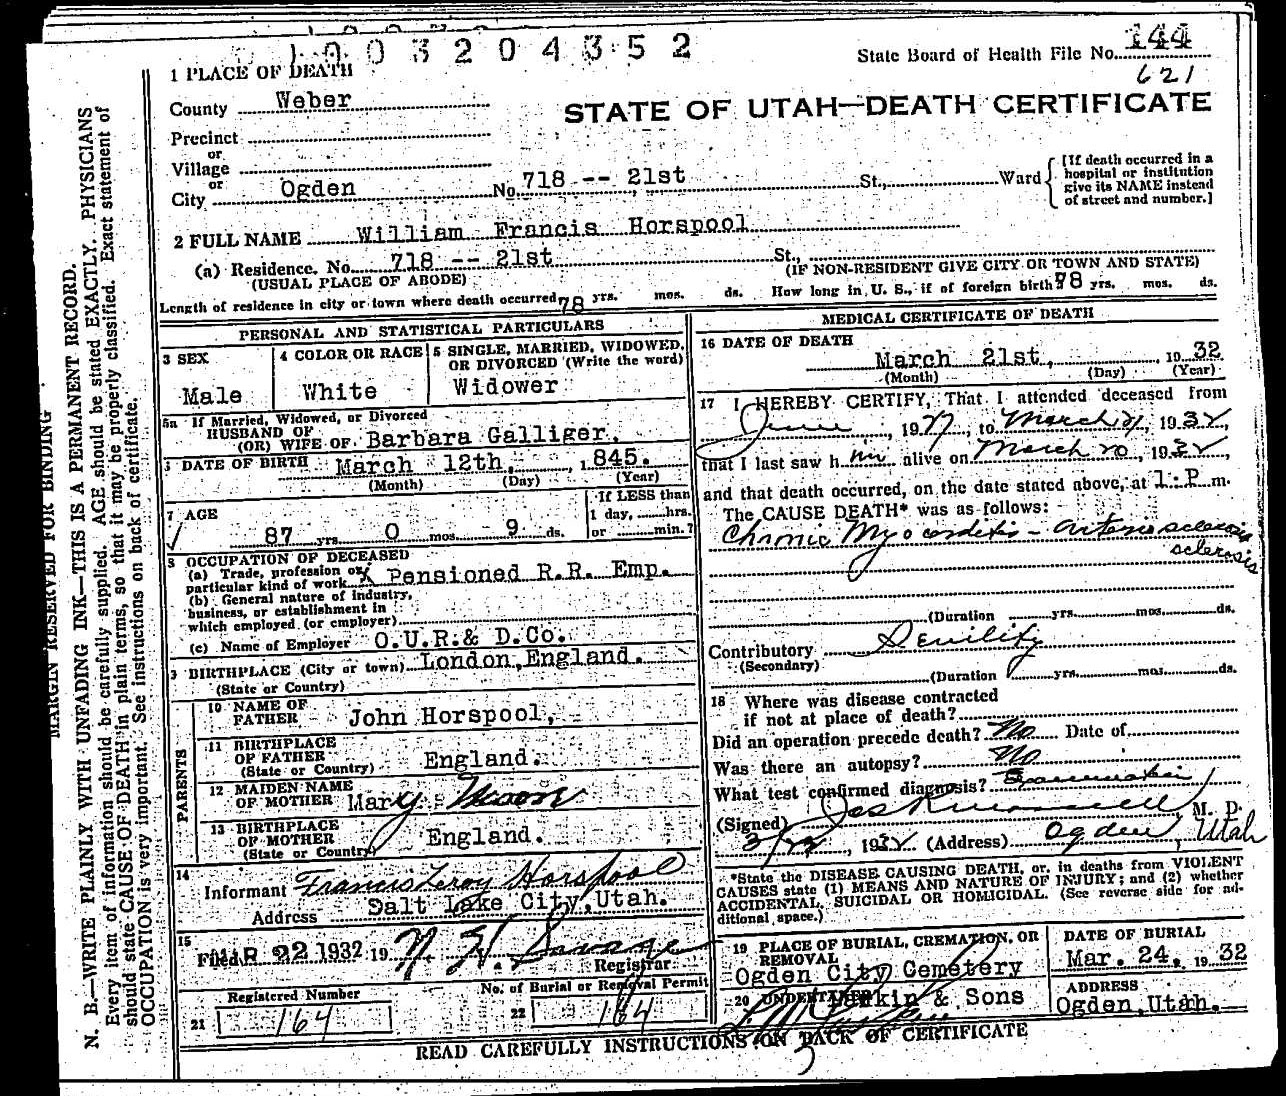 1003204352
State Board of Health File No. 144
621
1 PLACE OF DEATH
County Weber
STATE OF UTAH—DEATH CERTIFICATE
Precinct
or
Village
or
City Ogden No. 718 -- 21st St., Ward
[If death occurred in a
hospital or institution
give its NAME instead
of street and number.]
2 FULL NAME William Francis Horspool
(a) Residence. No. 718 -- 21st St.,
(USUAL PLACE OF ABODE) (IF NON-RESIDENT GIVE CITY OR TOWN AND STATE)
Length of residence in city or town where death occurred 78 yrs. mos. ds. How long in U. S., if of foreign birth 78 yrs. mos. ds.
PERSONAL AND STATISTICAL PARTICULARS
3 SEX
Male
4 COLOR OR RACE
White
5 SINGLE, MARRIED, WIDOWED,
OR DIVORCED (Write the word)
Widower
5a If Married, Widowed, or Divorced
HUSBAND OF
(OR) WIFE OF Barbara Galliger.
DATE OF BIRTH March 12th, 1845.
(Month) (Day) (Year)
7 AGE
87 yrs. 0 mos. 9 ds.
If LESS than
1 day, hrs.
or min.?
8 OCCUPATION OF DECEASED
(a) Trade, profession or
particular kind of work X Pensioned R.R. Emp.
(b) General nature of industry,
business, or establishment in
which employed (or employer)
(c) Name of Employer O.U.R.& D.Co.
9 BIRTHPLACE (City or town) London, England.
(State or Country)
PARENTS
10 NAME OF
FATHER John Horspool,
11 BIRTHPLACE
OF FATHER
(State or Country) England.
12 MAIDEN NAME
OF MOTHER Mary Moore
13 BIRTHPLACE
OF MOTHER
(State or Country) England.
14
Informant Francis Leroy Horspool
Address Salt Lake City, Utah.
15
Filed MAR 22 1932 19 Registrar
Registered Number
21 164
No. of Burial or Removal Permit
22 164
MEDICAL CERTIFICATE OF DEATH
16 DATE OF DEATH
March 21st, 1932
(Month) (Day) (Year)
17 I HEREBY CERTIFY, That I attended deceased from
June, 19 , to March 21, 1932,
that I last saw him alive on March 20, 1932,
and that death occurred, on the date stated above, at 1 P m.
The CAUSE DEATH* was as follows:
Chronic Myocarditis - Arteriosclerosis
sclerosis
(Duration yrs. mos. ds.
Contributory Senility
(Secondary)
(Duration yrs. mos. ds.
18 Where was disease contracted
if not at place of death?
Did an operation precede death? No Date of
Was there an autopsy? No
What test confirmed diagnosis? Examination
(Signed) M. D.
3/22, 1932 (Address) Ogden, Utah
*State the DISEASE CAUSING DEATH, or, in deaths from VIOLENT
CAUSES state (1) MEANS AND NATURE OF INJURY; and (2) whether
ACCIDENTAL, SUICIDAL OR HOMICIDAL. (See reverse side for ad-
ditional space.)
19 PLACE OF BURIAL, CREMATION, OR
REMOVAL
Ogden City Cemetery
DATE OF BURIAL
Mar. 24, 1932
20 UNDERTAKER Larkin & Sons
ADDRESS
Ogden, Utah.
READ CAREFULLY INSTRUCTIONS ON BACK OF CERTIFICATE
MARGIN RESERVED FOR BINDING
N. B.—WRITE PLAINLY WITH UNFADING INK—THIS IS A PERMANENT RECORD.
Every item of information should be carefully supplied. AGE should be stated EXACTLY. PHYSICIANS
should state CAUSE OF DEATH in plain terms, so that it may be properly classified. Exact statement of
OCCUPATION is very important. See instructions on back of certificate.